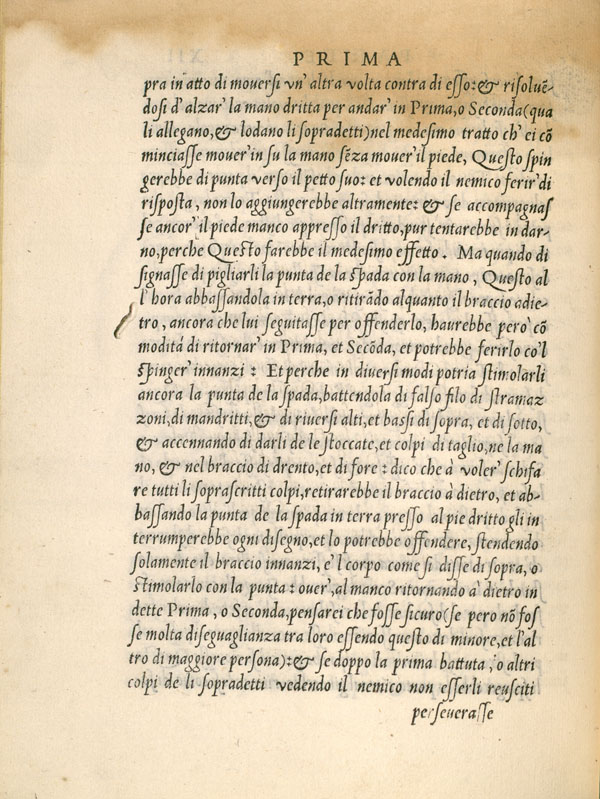 PRIMA
pra in atto di mouersi vn' altra volta contra di esso: & risoluē-
dosi d' alzar' la mano dritta per andar' in Prima, o Seconda (qua
li allegano, & lodano li sopradetti) nel medesimo tratto ch' ei cō
minciasse mouer' in su la mano sēza mouer' il piede, Questo spin
gerebbe di punta verso il petto suo: et volendo il nemico ferir' di
risposta, non lo aggiungerebbe altramente: & se accompagnas
se ancor' il piede manco appresso il dritto, pur tentarebbe in dar-
no, perche Questo farebbe il medesimo effetto. Ma quando di
signasse di pigliarli la punta de la spada con la mano, Questo al
l' hora abbassandola in terra, o ritirādo alquanto il braccio adie-
tro, ancora che lui seguitasse per offenderlo, haurebbe però cō
modità di ritornar' in Prima, et Secōda, et potrebbe ferirlo co'l
spinger' innanzi: Et perche in diuersi modi potria stimolarli
ancora la punta de la spada, battendola di falso filo di stramaz
zoni, di mandritti, & di riuersi alti, et bassi di sopra, et di sotto,
& accennando di darli de le stoccate, et colpi di taglio, ne la ma
no, & nel braccio di drento, et di fore: dico che à voler' schifa
re tutti li soprascritti colpi, retirarebbe il braccio à dietro, et ab-
bassando la punta de la spada in terra presso al pie dritto gli in
terrumperebbe ogni disegno, et lo potrebbe offendere, stendendo
solamente il braccio innanzi, e'l corpo come si disse di sopra, o
stimolarlo con la punta: ouer', al manco ritornando à dietro in
dette Prima, o Seconda, pensarei che fosse sicuro (se pero nō fos
se molta diseguaglianza tra loro essendo questo di minore, et l'al
tro di maggiore persona): & se doppo la prima battuta, o altri
colpi de li sopradetti vedendo il nemico non esserli reusciti
perseuerasse